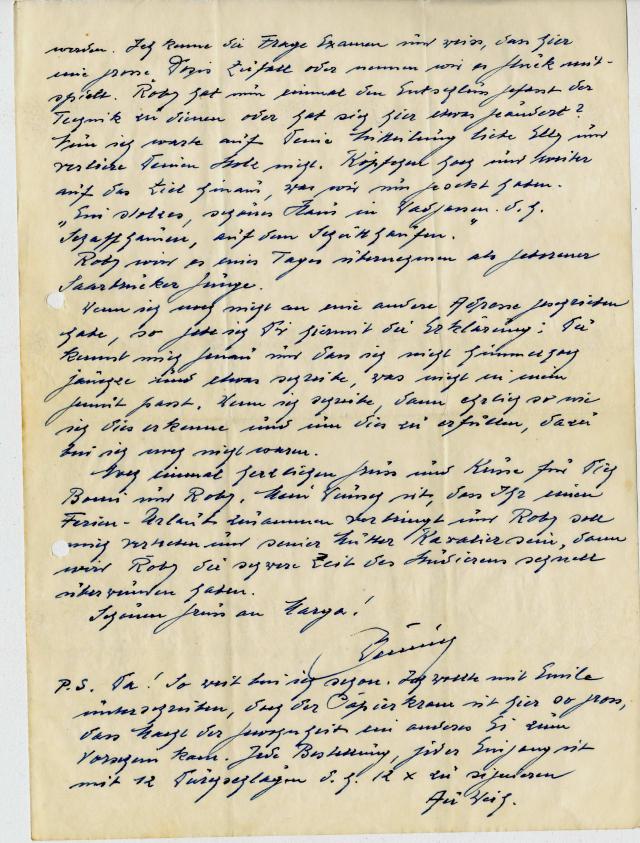 werden. Ich kenne die Frage Examen und weiss, dass hier
eine grosse Dosis Zufall oder nennen wir es Glück mit-
spielt. Roby hat nun einmal den Entschluss gefasst der
Technik zu dienen oder hat sich hier etwas geändert?
Nun ich warte auf Deine Mitteilung liebe Elly und
verliere Deinen Stolz nicht. Köpfchen hoch und weiter
auf das Ziel hinaus, was wir uns gesetzt haben.
„Ein stolzes, schönes Haus in d. h.
Schaffhausen, auf dem
Roby wird es eines Tages übernehmen als geborener
Saarbrücker Junge.
Wenn ich noch nicht an eine andere Adresse geschrieben
habe, so gebe ich Dir hiermit die Erklärung: Du
kennst mich genau und dass ich nicht himmelhoch
jauchze und etwas schreibe, was nicht in mein
Gemüt passt. Wenn ich schreibe, dann ehrlich so wie
ich dies erkenne und um dies zu erfüllen, dazu
bin ich noch nicht
Noch einmal herzlichen Gruss und Küsse für Dich
und Roby. Mein Wunsch ist, dass Ihr einen
Ferien-Urlaub zusammen verbringt und Roby soll
mich vertreten und seiner Mutter Kavalier sein, dann
wird Roby die schwere Zeit des Studierens schnell
überwunden haben.
Schönen Gruss an Marga!
P.S. Da! So weit bin ich schon. Ich wollte mit Emile
unterschreiben, doch der Papierkram ist hier so gross,
dass Macht der Gewohnheit ein anderes Ei zum
Vorschein kam. Jede Bestellung, jeder Eingang ist
mit 12 Durchschlägen d. h. 12 x zu signieren